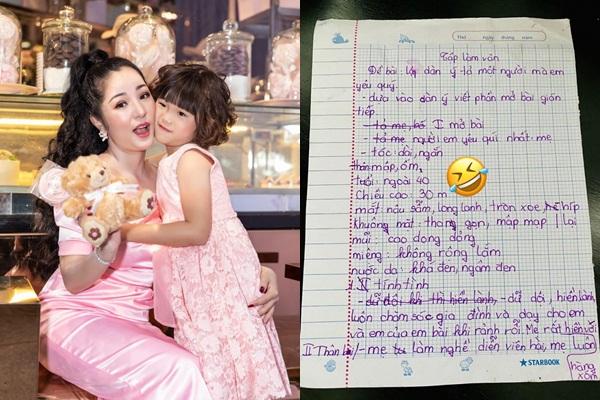 Thứ ngày tháng năm
Tập làm văn
Đề bài: Lập dàn ý tả một người mà em
yêu quý.
- dựa vào dàn ý viết phần mở bài gián
tiếp
tả mẹ, bố I mở bài
- tả mẹ người em yêu quí nhất: mẹ
- tóc: dài, ngắn
thân: mập, ốm,
tuổi: ngoài 40
Chiều cao: 30 m
mắt: nâu sẫm, long lanh, tròn xoe, híp
khuông mặt: thon gọn, mập mạp lại
mũi: cao dong dỏng
miệng: không rộng lắm
nước da: khá đen, ngâm đen
II tính tình
- dữ dội khi thì hiền lành, - dữ dội, hiền lành,
luôn chăm sóc gia đình và dạy cho em
và em của em bài khi rảnh rỗi. Mẹ rất hiền với
II Thân bài - mẹ làm nghề diễn viên hài, mẹ luôn
hàng
xóm
STARBOOK